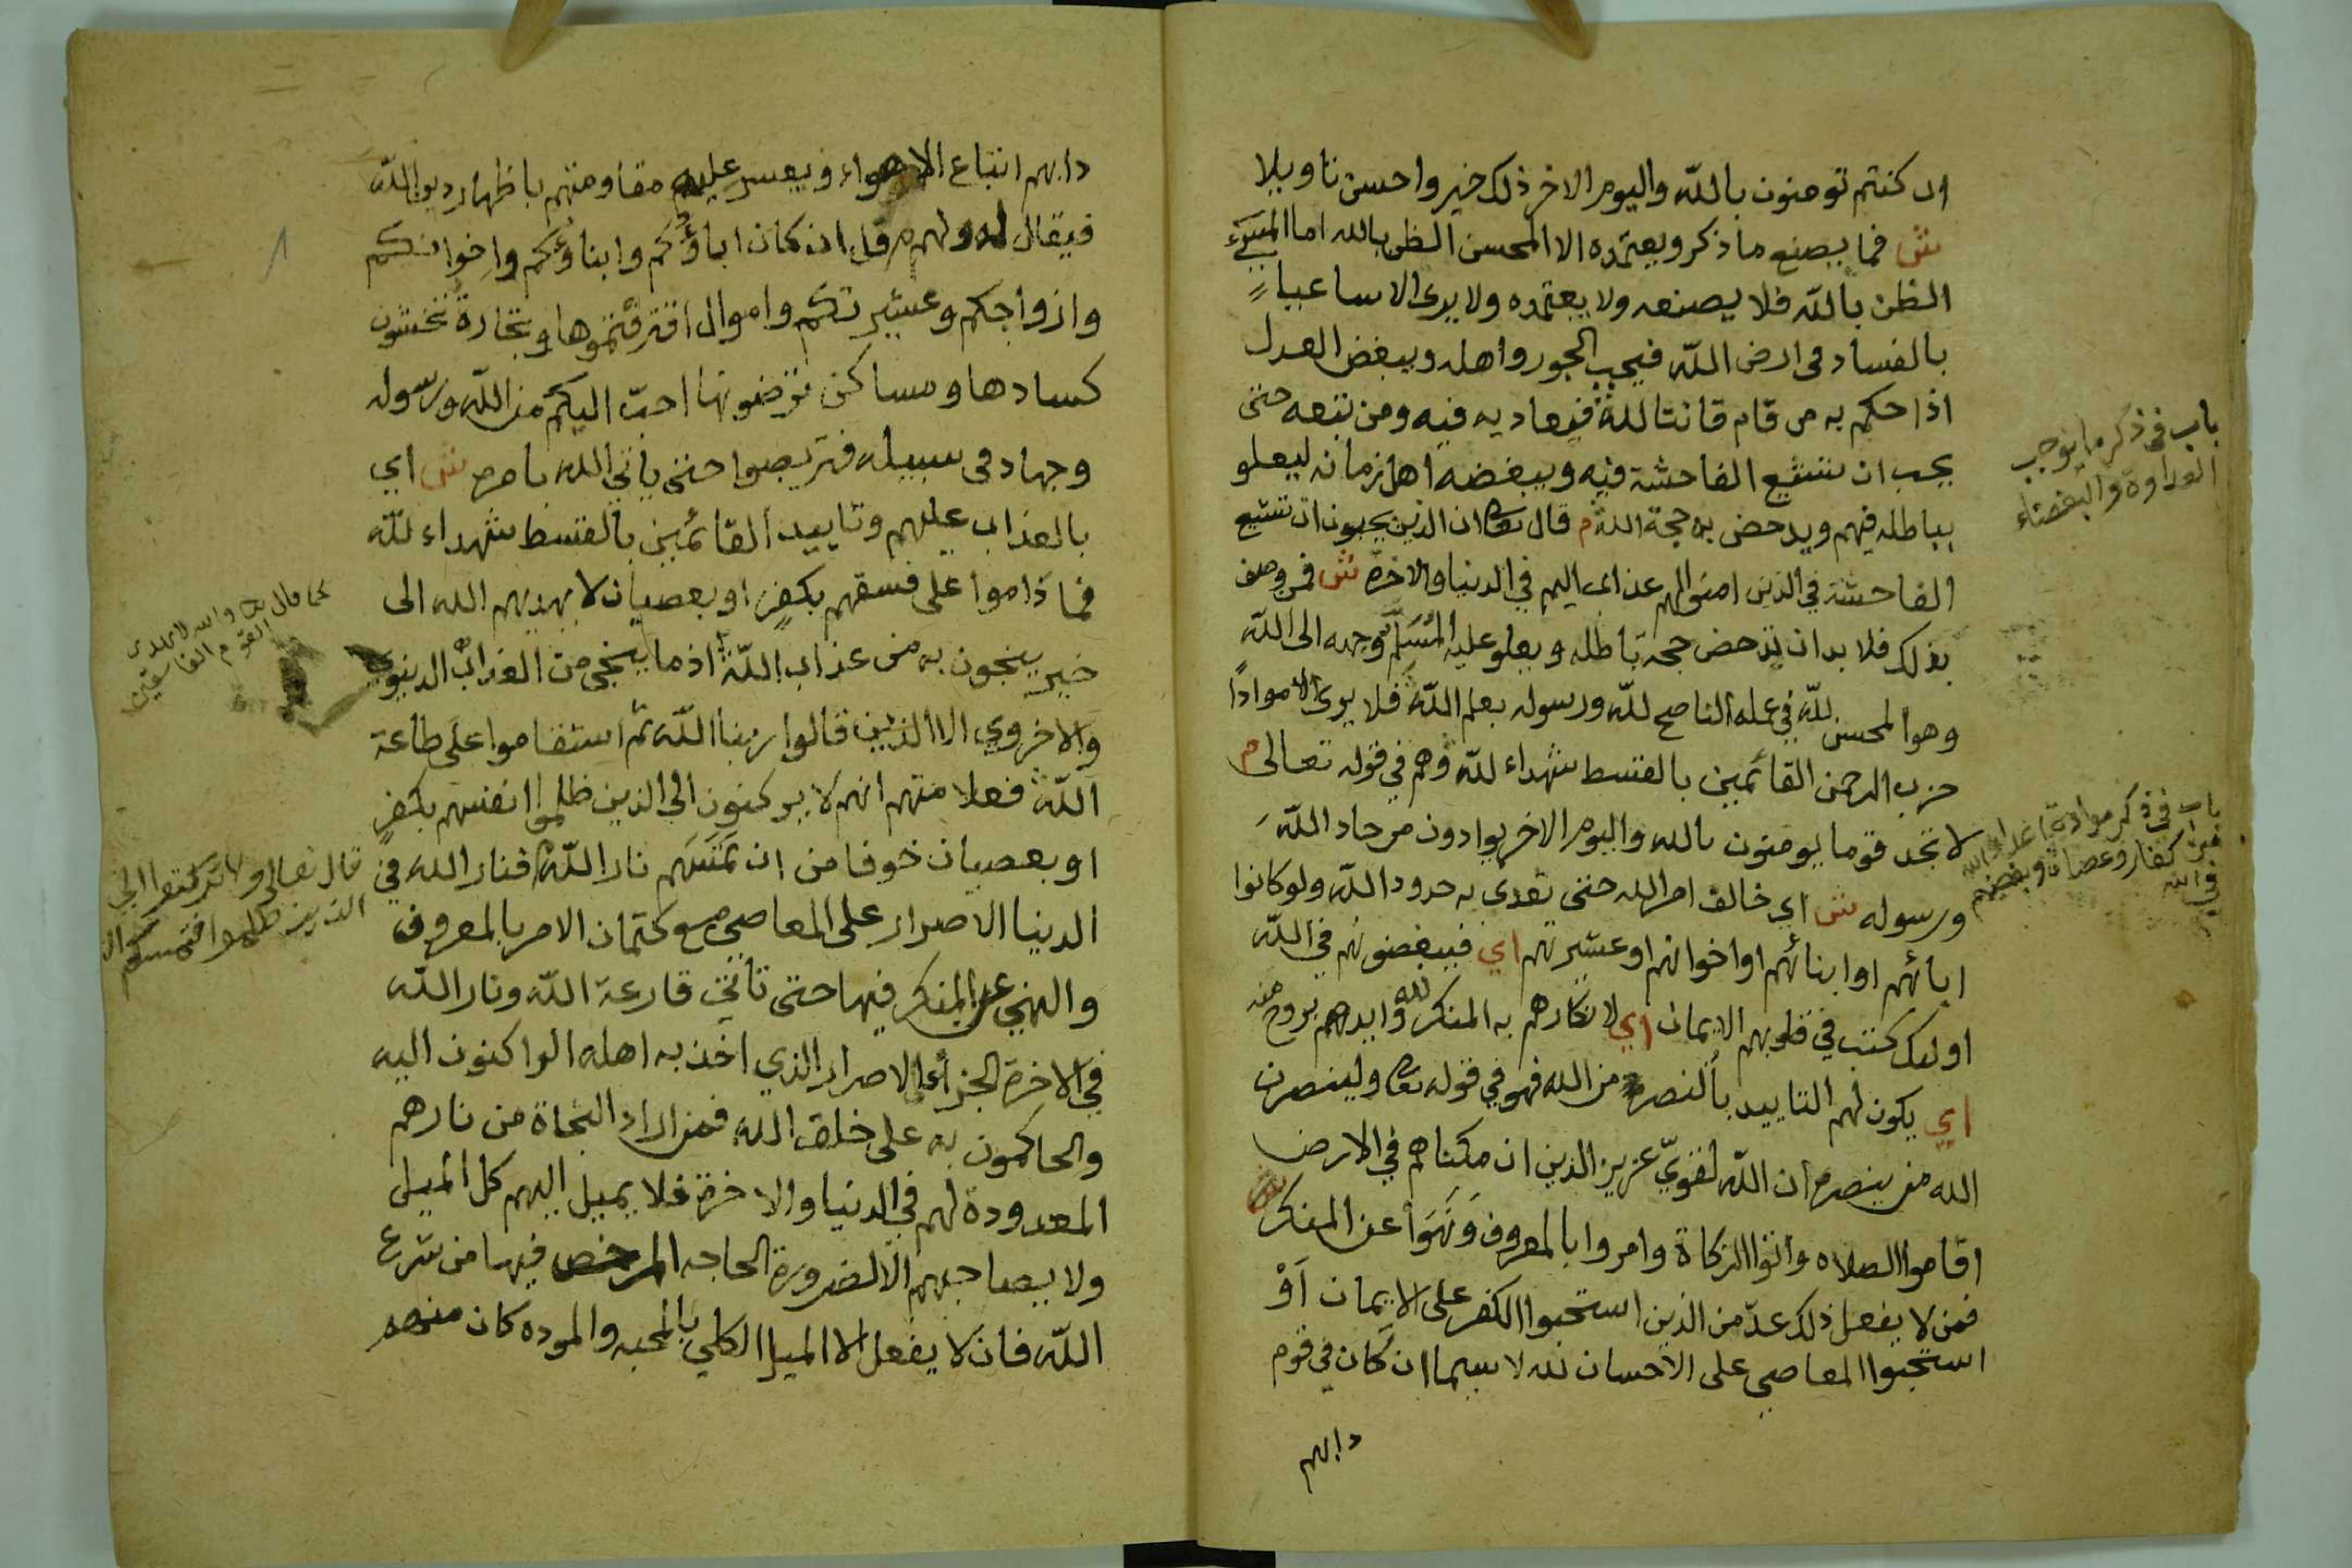 ان كنتم تومنون بالله واليوم الاخر ذلك خير واحسن تاويلا
ش فما يصنع ما ذكر ويعتمده الا المحسن الظن بالله اما المسيء
الظن بالله فلا يصنعه ولا يعتمده ولا يرى الا ساعيا
بالفساد في ارض الله فيحب الجور واهله ويبغض العدل
اذا حكم به من قام قانتا لله فيعاديه فيه ومن تبعه حتى
يحب ان تشيع الفاحشة فيه ويبغضه اهل زمانه ليعلو
بباطله فيهم ويدحض به حجة الله م قال تعا ان الذين يحبون ان تشيع
الفاحشة في الذين امنوا لهم عذاب اليم في الدنيا والاخرة ش فمن وصف
بذلك فلا بد ان تدحض حجة باطله ويعلو عليه المسلم وجهه الى الله
وهو المحسن لله في عمله الناصح لله ورسوله بعلم الله فلا يرى الا موادا
حزب الرحمن القائمين بالقسط شهداء لله وهم في قوله تعالى م
لا تجد قوما يومنون بالله واليوم الاخر يوادون من حاد الله
ورسوله ش اي خالف امر الله حتى تعدى به حدود الله ولو كانوا
ابائهم او ابنائهم او اخوانهم او عشيرتهم اي فيبغضونهم في الله
اولئك كتب في قلوبهم الايمان اي لانكارهم به المنكر لله وايدهم بروح منه
اي يكون لهم التاييد بالنصر من الله فهو في قوله تعا ولينصرن
الله من ينصره ان الله لقوي عزيز الذين ان مكناهم في الارض
اقاموا الصلاه واتوا الزكاة وامروا بالمعروف ونهوا عن المنكر ش
فمن لا يفعل ذلك عد من الذين استحبوا الكفر على الايمان او
استحبوا المعاصي على الاحسان لله لا سيما ان كان في قوم
دابهم
باب في ذكر ما يوجب
العداوة والبغضاء
باب في ذكر موادة اعداء الله
من كفار وعصاة وبغضهم
في الله
دابهم اتباع الاهواء ويعسر عليه مقاومتهم باظهار دين الله
فيقال له ولهم م قل ان كان اباؤكم وابناؤكم واخوانكم
وازواجكم وعشيرتكم واموال اقترفتموها وتجارة تخشون
كسادها ومساكن ترضونها احب اليكم من الله ورسوله
وجهاد في سبيله فتربصوا حتى ياتي الله بامره ش اي
بالعذاب عليهم وتاييد القائمين بالقسط شهداء لله
فما داموا على فسقهم بكفر او بعصيان لا يهديهم الله الى
خير ينجون به من عذاب الله اذ ما ينجي من العذاب الدنيوي
والاخروي الا الذين قالوا ربنا الله ثم استقاموا على طاعة
الله فعلا منهم انهم لا يركنون الى الذين ظلموا انفسهم بكفر
او بعصيان خوفا من ان تمسهم نار الله فنار الله في
الدنيا الاصرار على المعاصي مع كتمان الامر بالمعروف
والنهي عن المنكر فيها حتى تاتي قارعة الله ونار الله
في الاخرة الجزا على الاصرار الذي اخذ به اهله الراكنون اليه
والحاكمون به على خلق الله فمن اراد النجاة من نارهم
المعدودة لهم في الدنيا والاخرة فلا يميل اليهم كل الميل
ولا يصاحبهم الا لضرورة الحاجه المرخص فيها من شرع
الله فان لا يفعل الا الميل الكلي بالمحبه والموده كان منهم
كما قال تعا والله لا يهدي
القوم الفاسقين
قال تعالى ولا تركنوا الى
الذين ظلموا فتمسكم النار